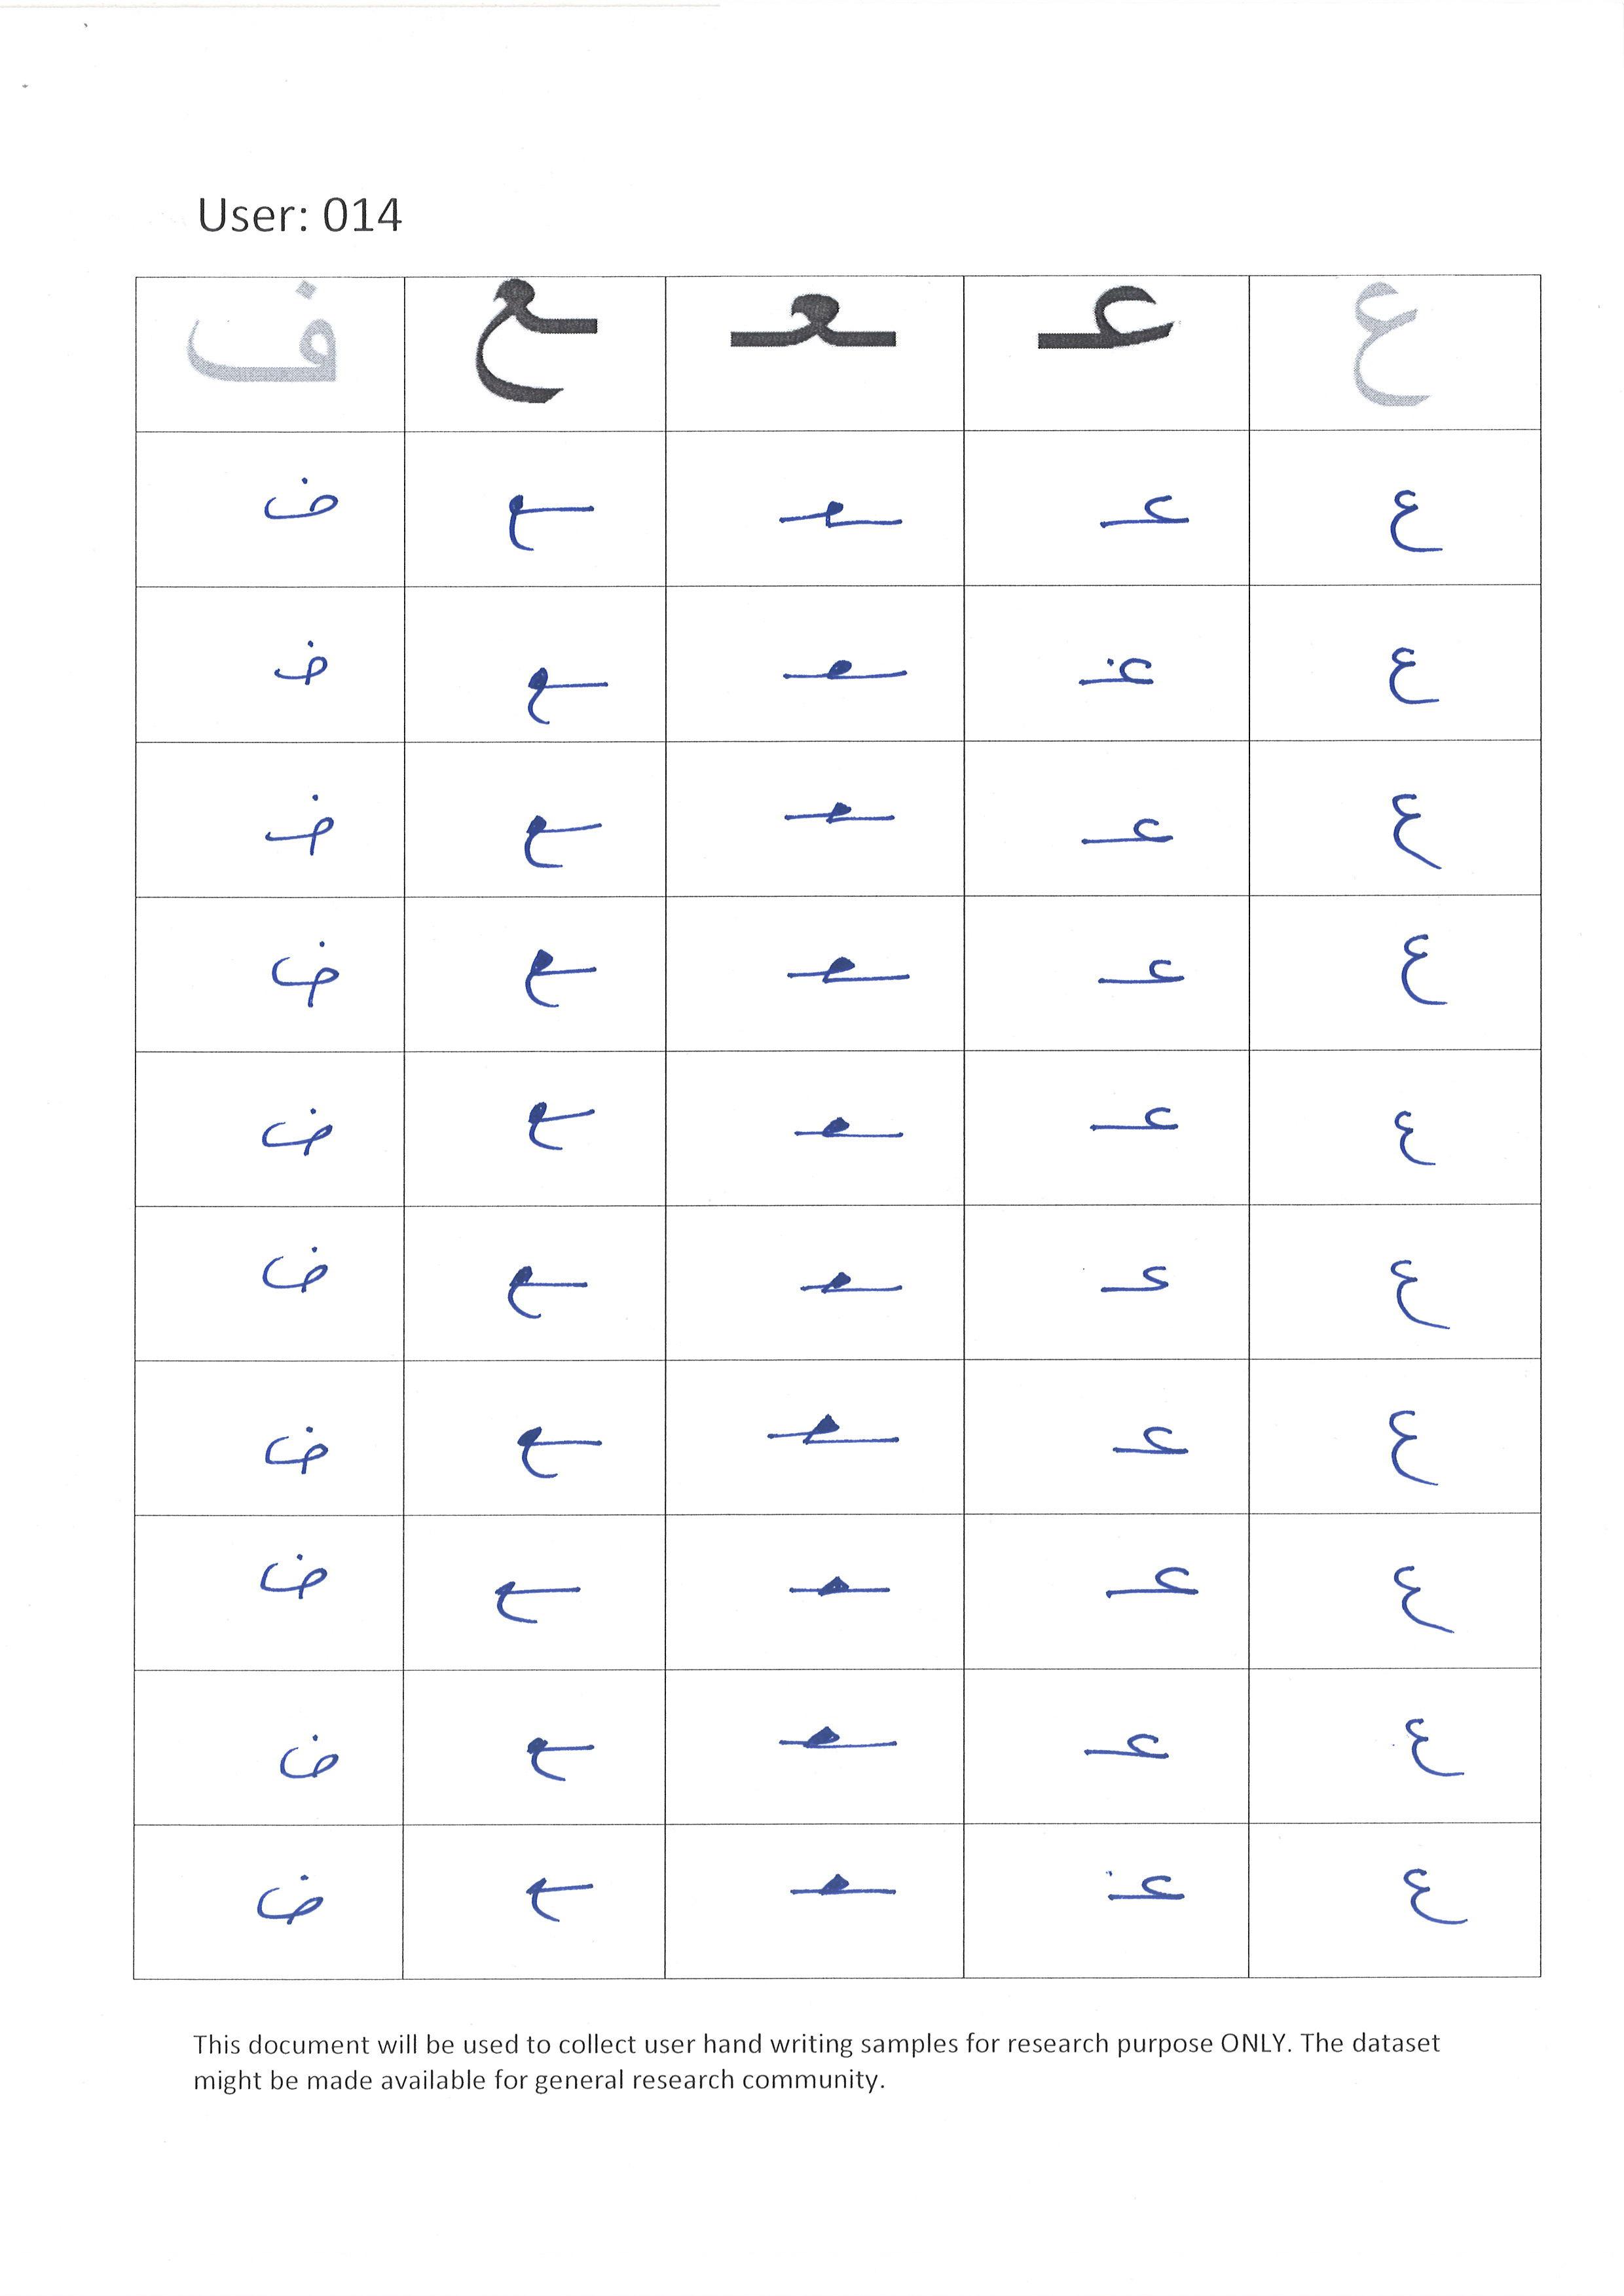 User: 014
ع عـ ـعـ ـع ف
ع عـ ـعـ ـع ف
ع غـ ـعـ ـع ف
ع عـ ـعـ ـع ف
ع عـ ـعـ ـع ف
ع عـ ـعـ ـع ف
ع عـ ـعـ ـع ف
ع عـ ـعـ ـع ف
ع عـ ـعـ ـع ف
ع عـ ـعـ ـع ف
ع غـ ـعـ ـع ف
This document will be used to collect user hand writing samples for research purpose ONLY. The dataset
might be made available for general research community.